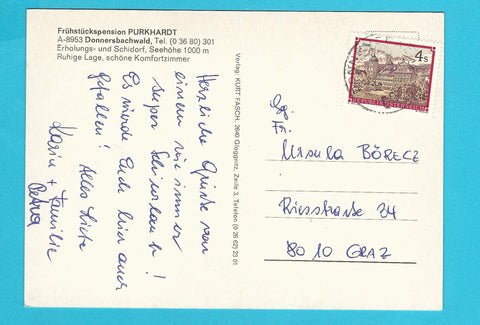 Frühstückspension PURKHARDT
A-8953 Donnersbachwald, Tel. (0 36 80) 301
Erholungs- und Schidorf, Seehöhe 1000 m
Ruhige Lage, schöne Komfortzimmer
Herzliche Grüsse von
einem wie immer
super Schiurlaub!
Es würde Euch hier auch
gefallen! Alles Liebe
Karin + Familie
Petra
Verlag: KURT FASCH, 2640 Gloggnitz, Zeile 3, Telefon (0 26 62) 23 01
4 S
REPUBLIK ÖSTERREICH
Fr.
Ursula BÖRECZ
Riesstraße 34
8010 GRAZ